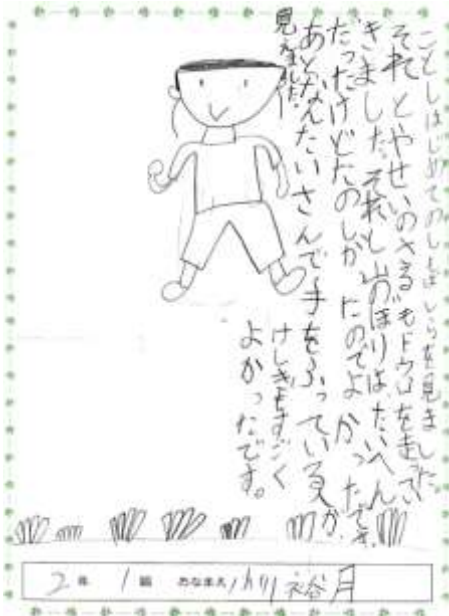 ことしはじめてのしまばしらを見ました。
それとやせいのさるもドウロを走って
きました。それと山のぼりは、たいへん
だったけどたのしかたのでよかったです。
あとなんたいさんで手をふっている人が、
見えました。
けしきもすごく
よかったです。
2年 1組 おなまえ 裕月